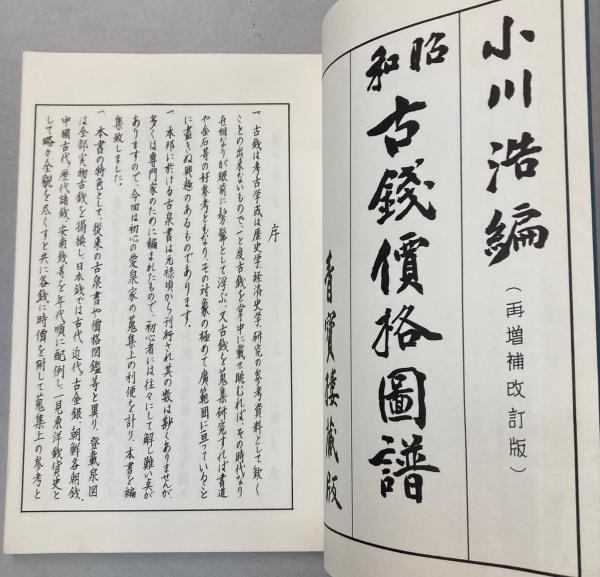 小川浩編
(再増補改訂版)
昭和
古錢價格圖譜
青寶樓藏版
序
一、古銭は考古学或は歴史学、経済史学、研究の参考資料として欽く
ことの出来ないもので、一と度古銭を掌中に載せ眺むれば、その時代なり
世相なりが眼前に髣髴として浮ぶ、又古銭を蒐集研究すれば書道
や金石等の好参考ともなり、その対象の極めて廣範囲に亘っていること
に盡きぬ興趣のあるものであります。
一、本邦に於ける古泉書は元禄頃から刊行され其の数は尠くありませんが、
多くは専門家のために編まれたもので、初心者には往々にして解し難い点が
ありますので、今回は初心の愛泉家の蒐集上の利便を計り、本書を編
集致しました。
一、本書の特色として、従来の古泉書や價格図鑑等と異り、登載泉図
は全部実物古銭を摘搨し、日本銭では古代、近代、古金銀、朝鮮各朝銭、
中國古代、歴代諸銭、安南銭等を年代順に配例し、一見東洋銭貨史と
して略々全貌を尽くすと共に各銭に時價を附して蒐集上の参考と